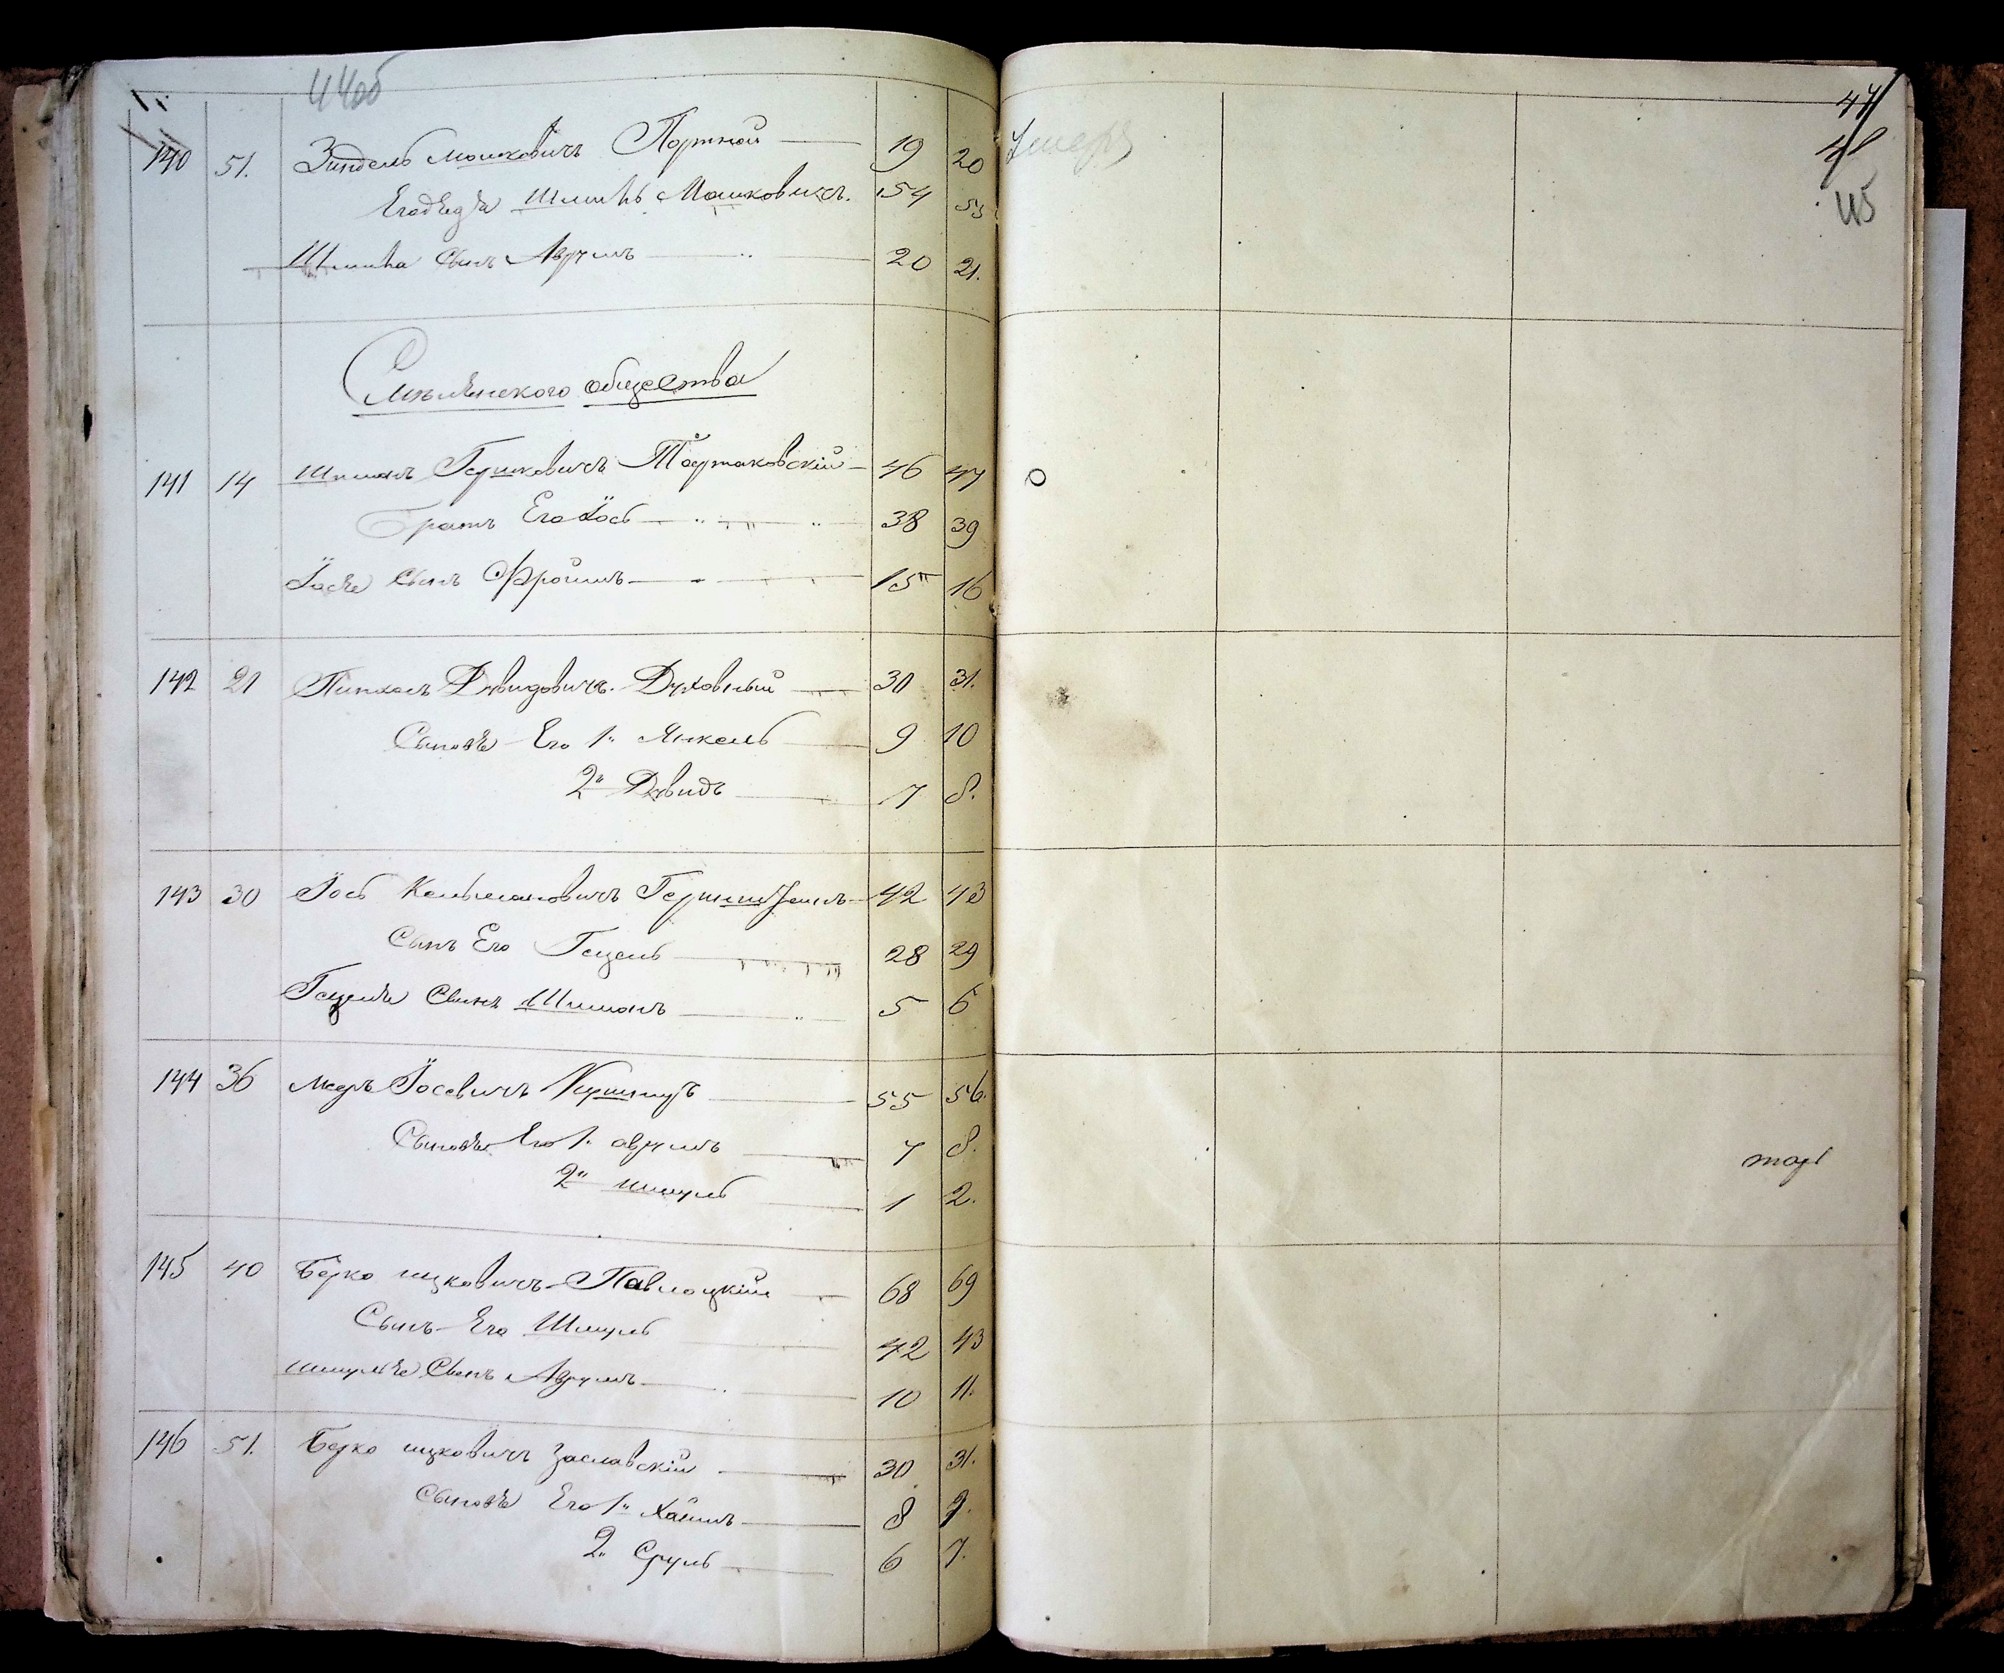 44об
140 51. Зиндель Мошковичъ Портной 19 20 Умеръ
Его дядя Шлиома Мошковичъ. 54 55
Шлиома сынъ Аврумъ 20 21.
47
45
Смѣлянского общества
141 14 Шиманъ Гершковичъ Тартаковскій 46 47
Братъ Его Іось 38 39
Іося сынъ Фроимъ 15 16
142 21 Пинхасъ Давидовичъ Духовный 30 31.
Сыновья Его 1. Янкель 9 10
2. Давидъ 7 8.
143 30 Іось Кельмановичъ 42 43
Сынъ Его Гецель 28 29
Гецеля сынъ Шиманъ 5 6
144 36 Мееръ Іосевичъ 55 56.
Сыновья Его 1. аврумъ 7 8.
2. шмуль 1 2.
145 40 Берко ицковичъ Павлоцкій 68 69
Сынъ Его Шмуль 42 43
шмуля Сынъ Аврумъ 10 11.
146 51. Берко ицковичъ Заславскій 30 31.
Сыновья Его 1. Хаимъ 8 9.
2. Сруль 6 7.